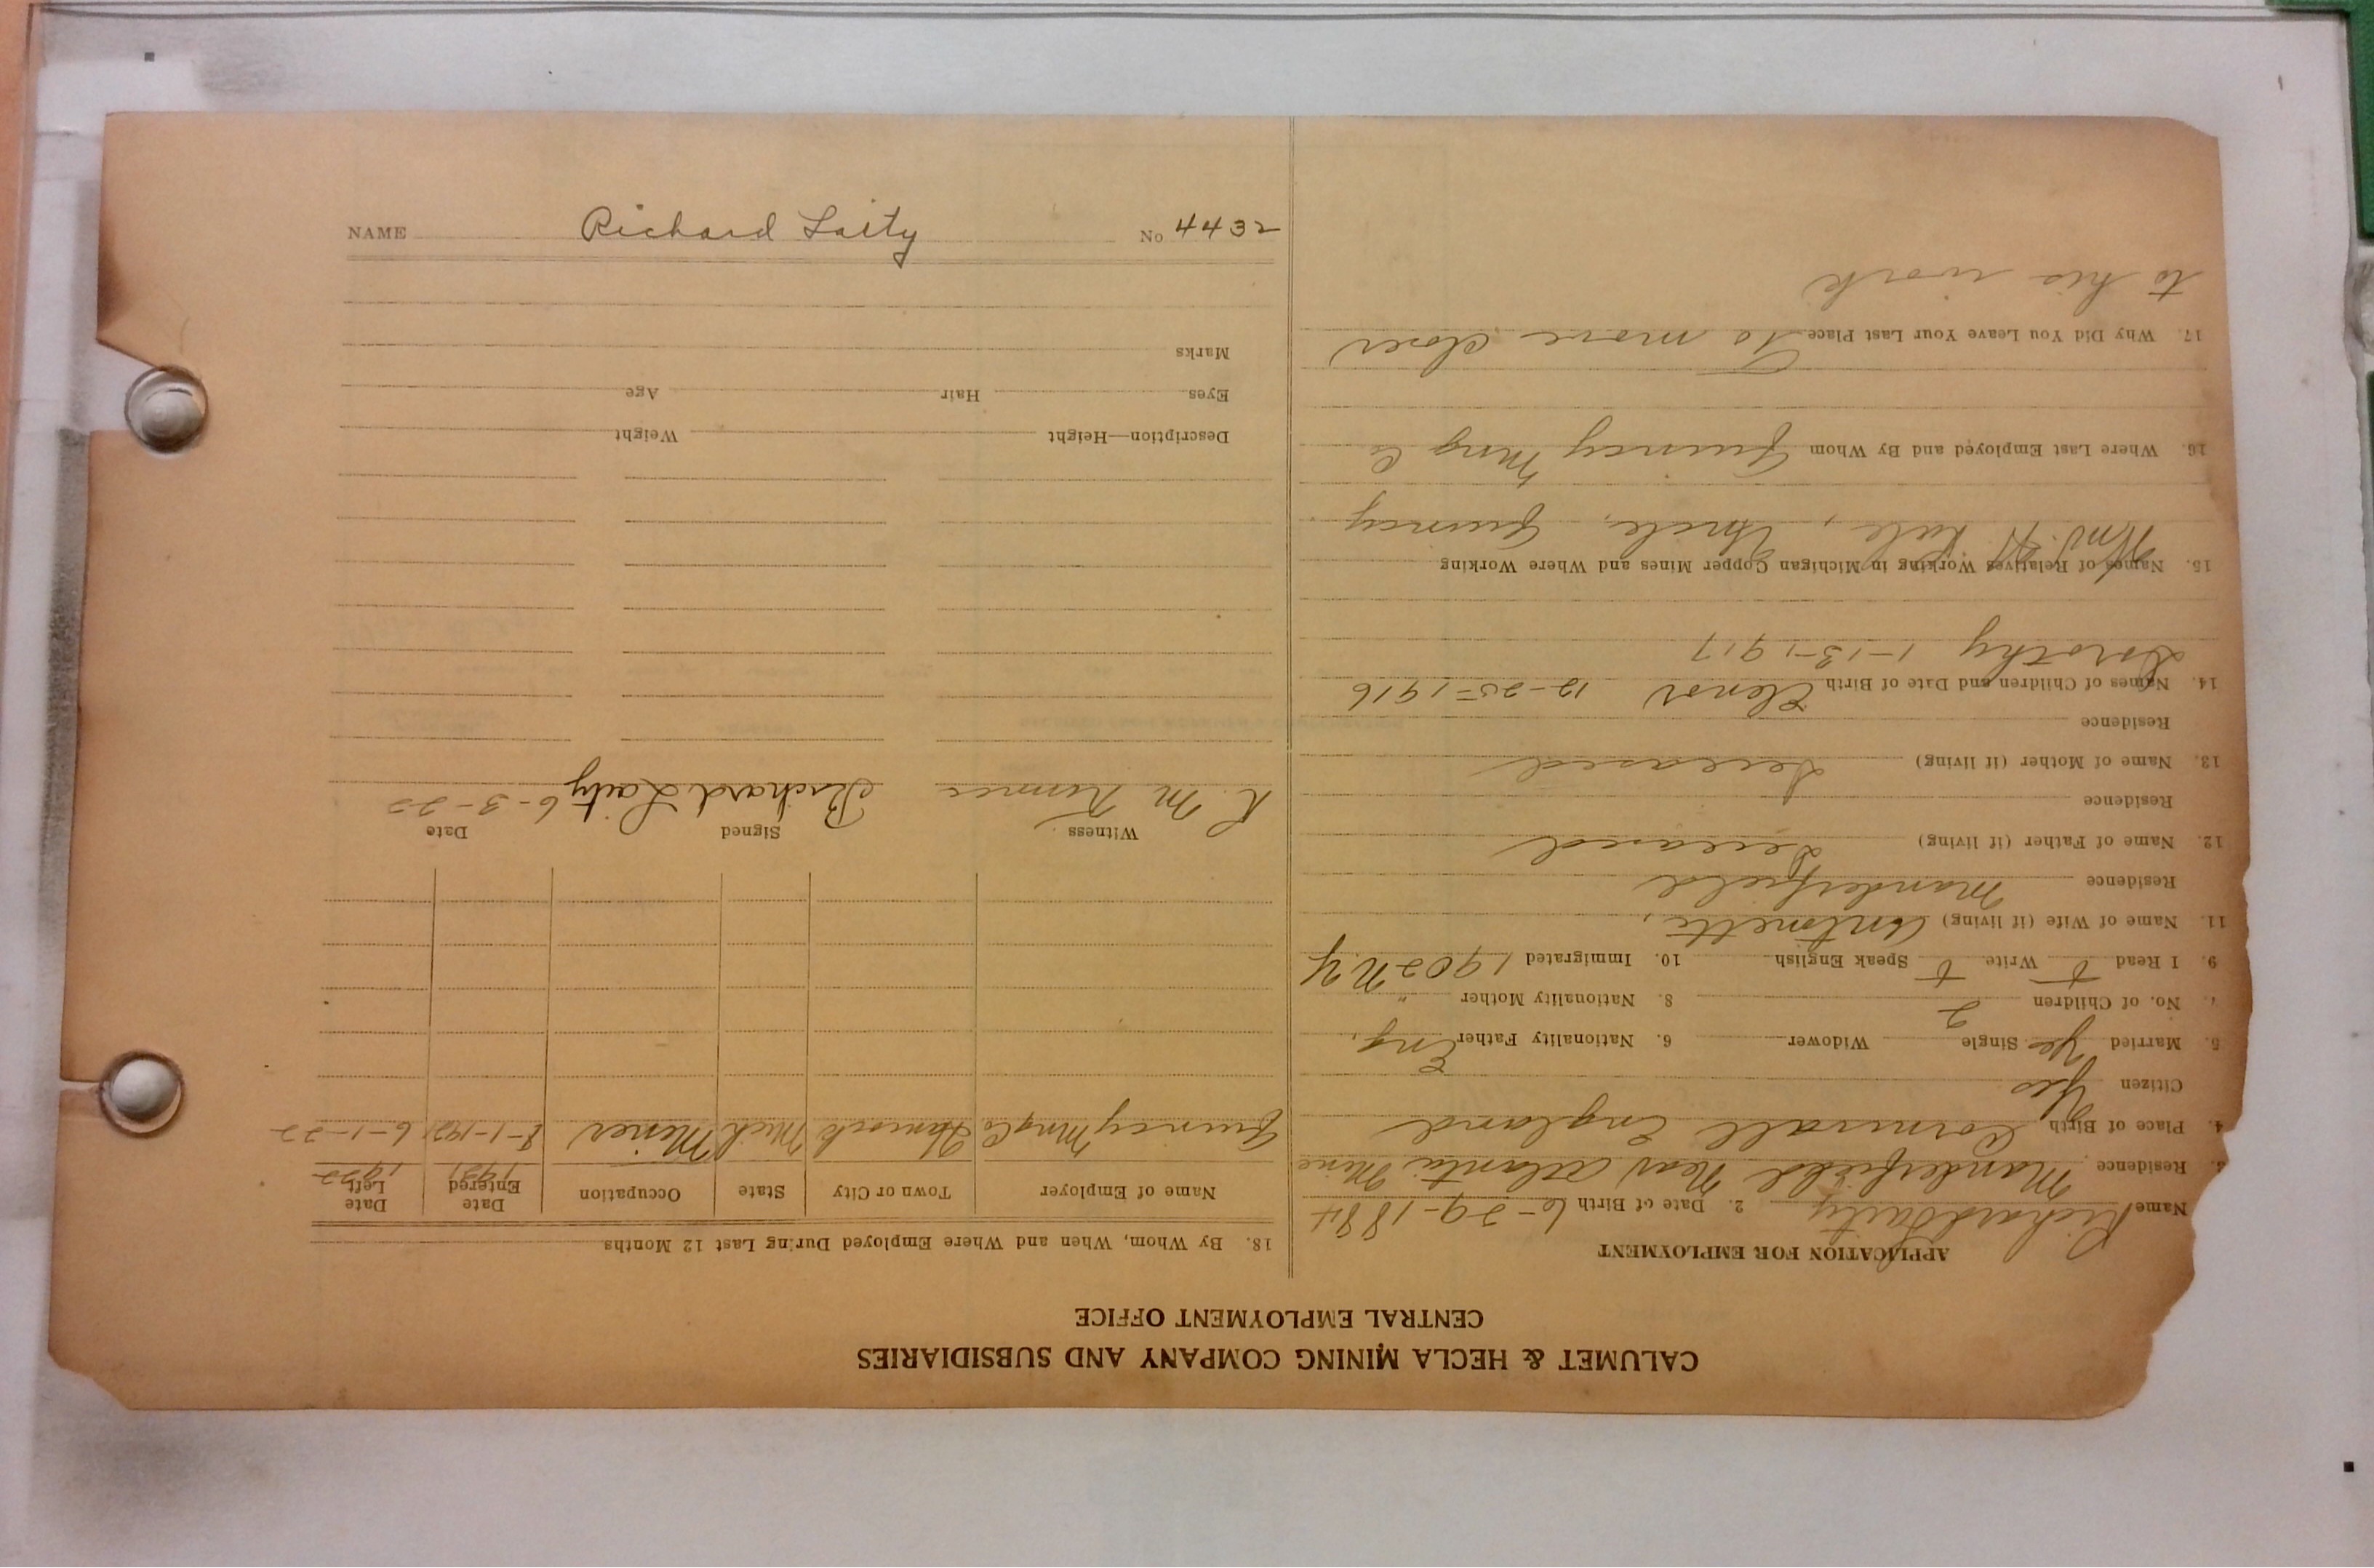 CALUMET & HECLA MINING COMPANY AND SUBSIDIARIES
CENTRAL EMPLOYMENT OFFICE
APPLICATION FOR EMPLOYMENT
Name Richard Laity 2. Date of Birth 6-29-1884
3. Residence Manderfield Near Atlantic Mine
4. Place of Birth Cornwall England
Citizen Yes
5. Married Yes Single Widower 6. Nationality Father Eng.
7. No. of Children 2 8. Nationality Mother "
9. I Read t Write t Speak English 10. Immigrated 1902 N.Y
11. Name of Wife (if living) Antonette,
Residence Manderfield
12. Name of Father (if living) Deceased
Residence
13. Name of Mother (if living) Deceased
Residence
14. Names of Children and Date of Birth Elenor 12-25-1916
Dorothy 1-13-1917
15. Names of Relatives Working in Michigan Copper Mines and Where Working
Wm. H , Uncle, Quincy
16. Where Last Employed and By Whom Quincy Mng Co
17. Why Did You Leave Your Last Place To move closer
to his work
18. By Whom, When and Where Employed During Last 12 Months
Name of Employer Town or City State Occupation Date Entered 1921 Date Left 1922
Quincy Mng Co Hancock Mich Miner 8-1-1921 6-1-22
Witness Signed Date
R. M Richard Laity 6-3-22
Description—Height Weight
Eyes Hair Age
Marks
NAME Richard Laity No 4432